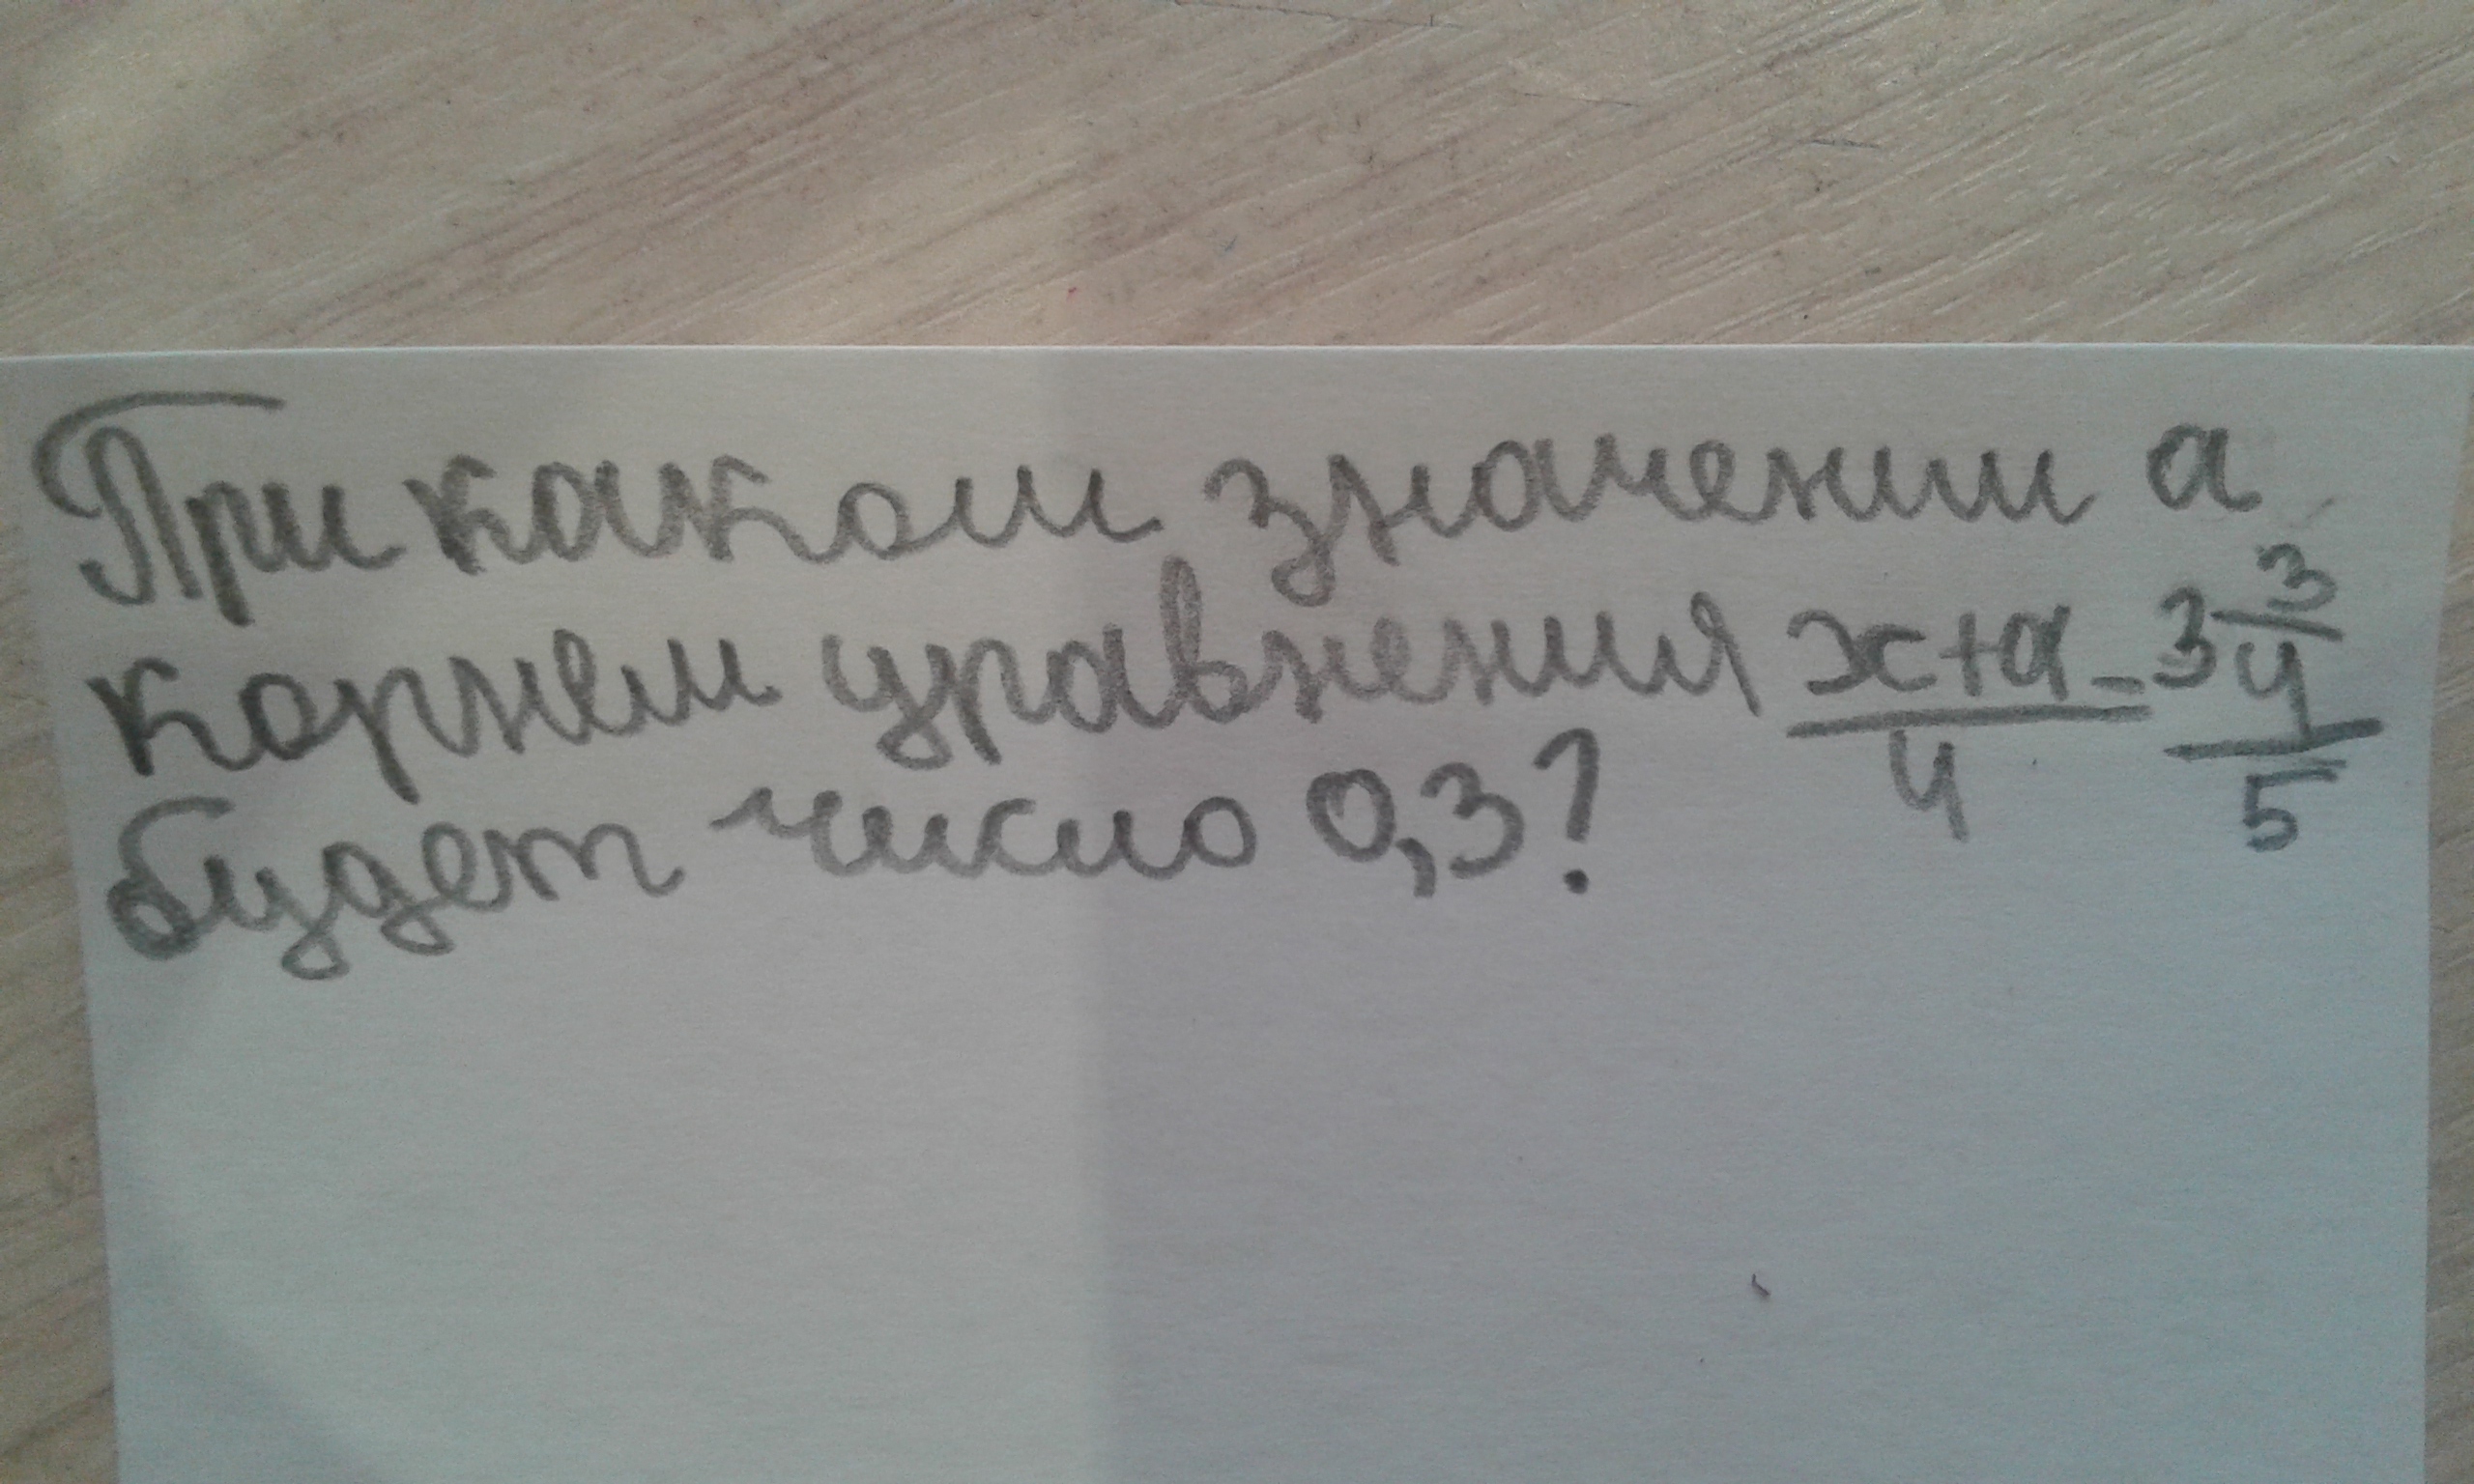 При каком значении а
корнем уравнения (x+a)/4 = (3 3/4)/5
будет число 0,3?